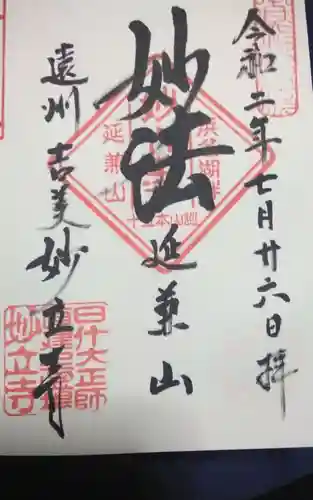 令和二年七月廿六日拝
妙法
延兼山
遠州吉美妙立寺
浜名湖畔
延兼山
日什大正師
妙立寺